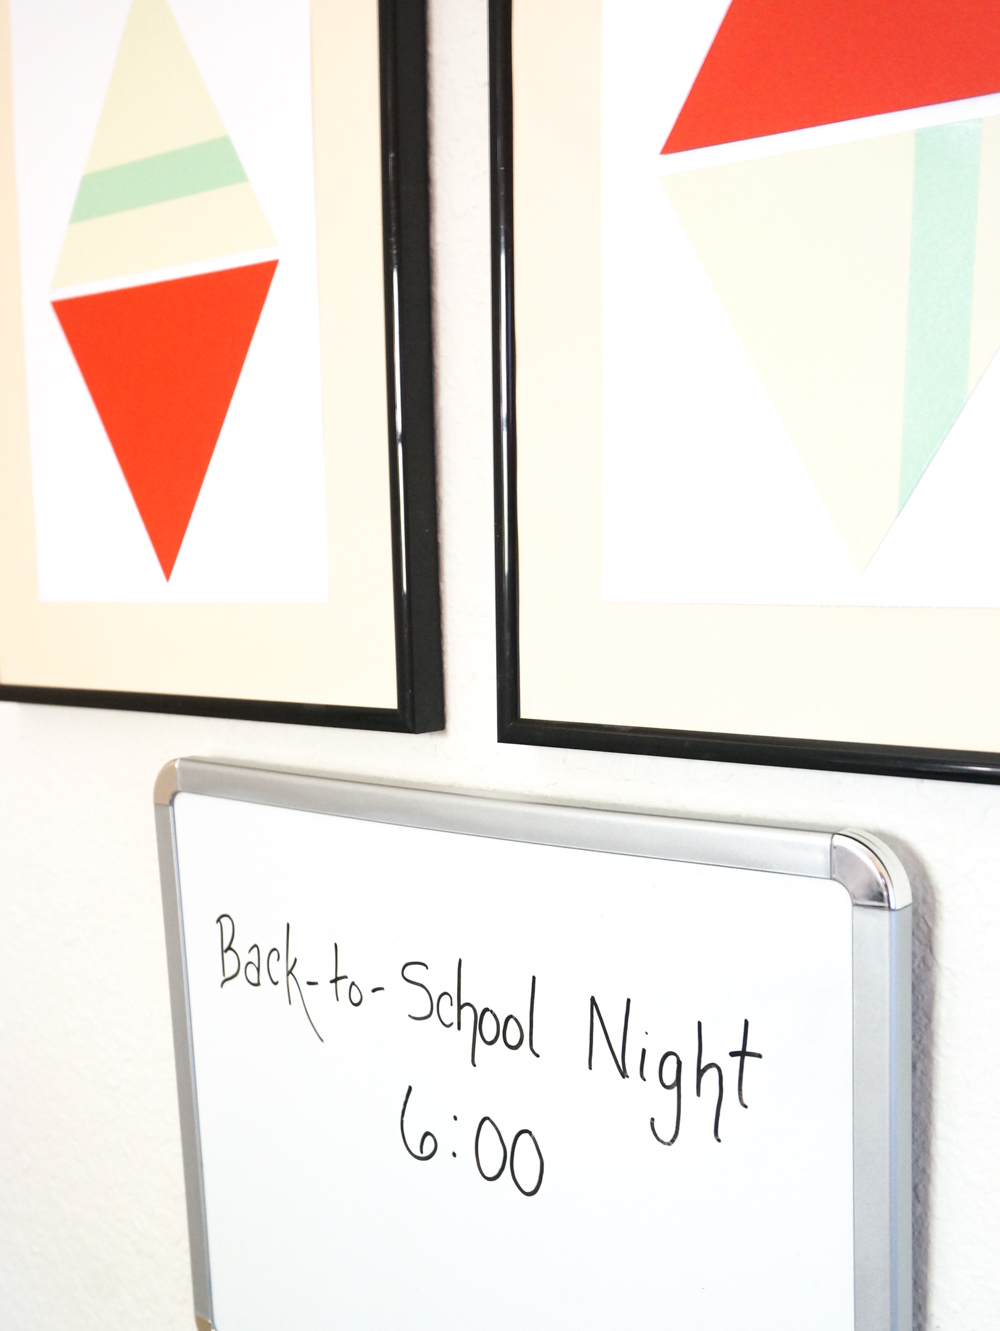 Back-to-School Night
6:00